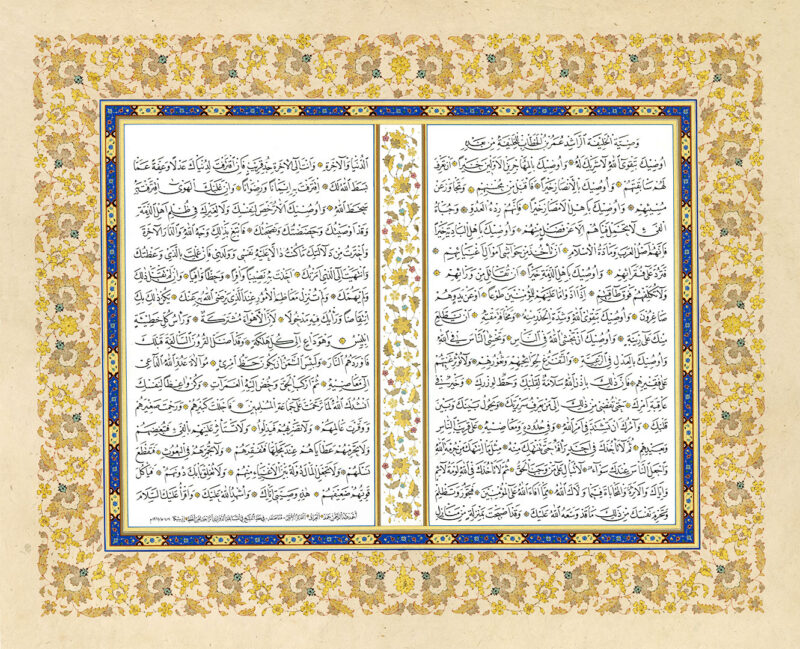 وصية الخليفة الراشد عمر بن الخطاب للخليفة من بعده
أوصيك بتقوى الله لا شريك له وأوصيك بالمهاجرين الأولين خيرا أن تعرف
لهم سابقتهم وأوصيك بالأنصار خيرا فاقبل من محسنهم وتجاوز عن
مسيئهم وأوصيك بأهل الأمصار خيرا فإنهم ردء العدو وجباة
الفيء لا تحمل فيئهم إلا عن فضل منهم وأوصيك بأهل البادية خيرا
فإنهم أصل العرب ومادة الإسلام أن تأخذ من حواشي أموال أغنيائهم
فترد على فقرائهم وأوصيك بأهل الذمة خيرا أن تقاتل من ورائهم
ولا تكلفهم فوق طاقتهم إذا أدوا ما عليهم للمؤمنين طوعا أو عن يد وهم
صاغرون وأوصيك بتقوى الله وشدة الحذر منه ومخافة مقته أن يطلع
منك على ريبة وأوصيك أن تخشى الله في الناس ولا تخشى الناس في الله
وأوصيك بالعدل في الرعية والتفرغ لحوائجهم وثغورهم ولا تؤثر غنيهم
على فقيرهم فإن ذلك بإذن الله سلامة لقلبك وحط لوزرك وخير في
عاقبة أمرك حتى تفضي من ذلك إلى من يعرف سريرتك ويحول بينك وبين
قلبك وآمرك أن تشتد في أمر الله وفي حدوده ومعاصيه على قريب الناس
وبعيدهم ثم لا تأخذك في أحد الرأفة حتى تنتهك منه مثل ما انتهك من حرمة الله
واجعل الناس عندك سواء لا تبال على من وجب الحق ثم لا تأخذك في الله لومة لائم
وإياك والأثرة والمحاباة فيما ولاك الله مما أفاء الله على المؤمنين فتجور وتظلم
وتحرم نفسك من ذلك ما قد وسعه الله عليك وقد أصبحت بمنزلة من منازل
الدنيا والآخرة فإن اقترفت لدنياك عدلا وعفة عما
بسط الله لك اقترفت به إيمانا ورضوانا وإن غلبك الهوى اقترفت به
سخط الله وأوصيك ألا ترخص لنفسك ولا لغيرك في ظلم أهل الذمة
وقد أوصيتك وحضضتك ونصحتك فابتغ بذلك وجه الله والدار الآخرة
واخترت من دلالتك ما كنت دالا عليه نفسي وولدي فإن عملت بالذي وعظتك
وانتهيت إلى الذي أمرتك أخذت به نصيبا وافرا وحظا وافيا وإن لم تقبل ذلك
ولم يهمك ولم تنزل معاظم الأمور عند الذي يرضى الله به عنك يكن ذلك بك
انتقاصا ورأيك فيه مدخولا لأن الأهواء مشتركة ورأس كل خطيئة
إبليس وهو داع إلى كل هلكة وقد أضل القرون السالفة قبلك
فأوردهم النار ولبئس الثمن أن يكون حظ امرئ موالاة عدو الله الداعي
إلى معاصيه ثم اركب الحق وخض إليه الغمرات وكن واعظا لنفسك
أنشدك الله لما ترحمت على جماعة المسلمين فأجللت كبيرهم ورحمت صغيرهم
ووقرت عالمهم ولا تضربهم فيذلوا ولا تستأثر عليهم بالفيء فتغضبهم
ولا تحرمهم عطاياهم عند محلها فتفقرهم ولا تجمرهم في البعوث فتقطع
نسلهم ولا تجعل المال دولة بين الأغنياء منهم ولا تغلق بابك دونهم فيأكل
قويهم ضعيفهم هذه وصيتي إياك وأشهد الله عليك وأقرأ عليك السلام